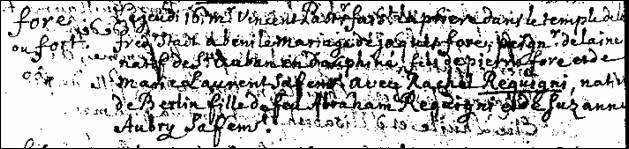 fore
ou fort.
Le jeudi 16. Mr. Vincent Past. faisant la priere dans le temple de la
fred. Stadt a beni le mariage de jaques fore, peign. de laine
natif de St. Auban en Dauphiné, fils de pierre fore et de
marie Laurent sa fem. avec Rachel Requigni, nati
de Berlin fille de feu Abraham Requigni et de Suzanne
Aubry sa fem.